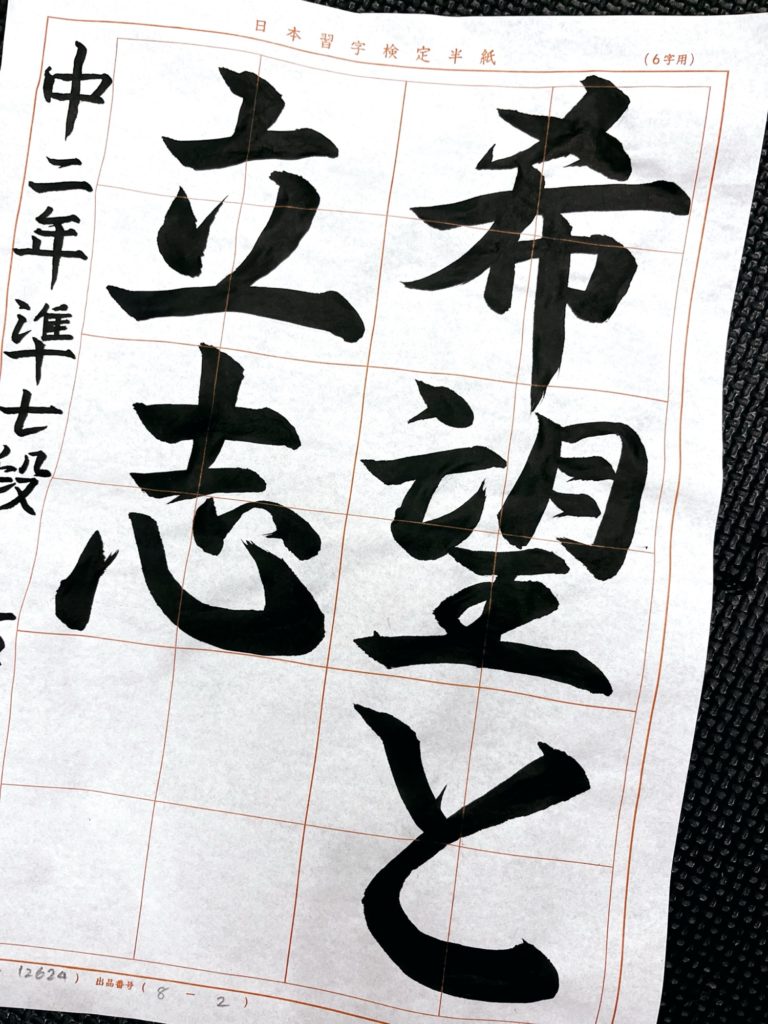 日本習字検定半紙
(6字用)
希望と
立志
中二年準七段
12624)
出品番号(8-2)